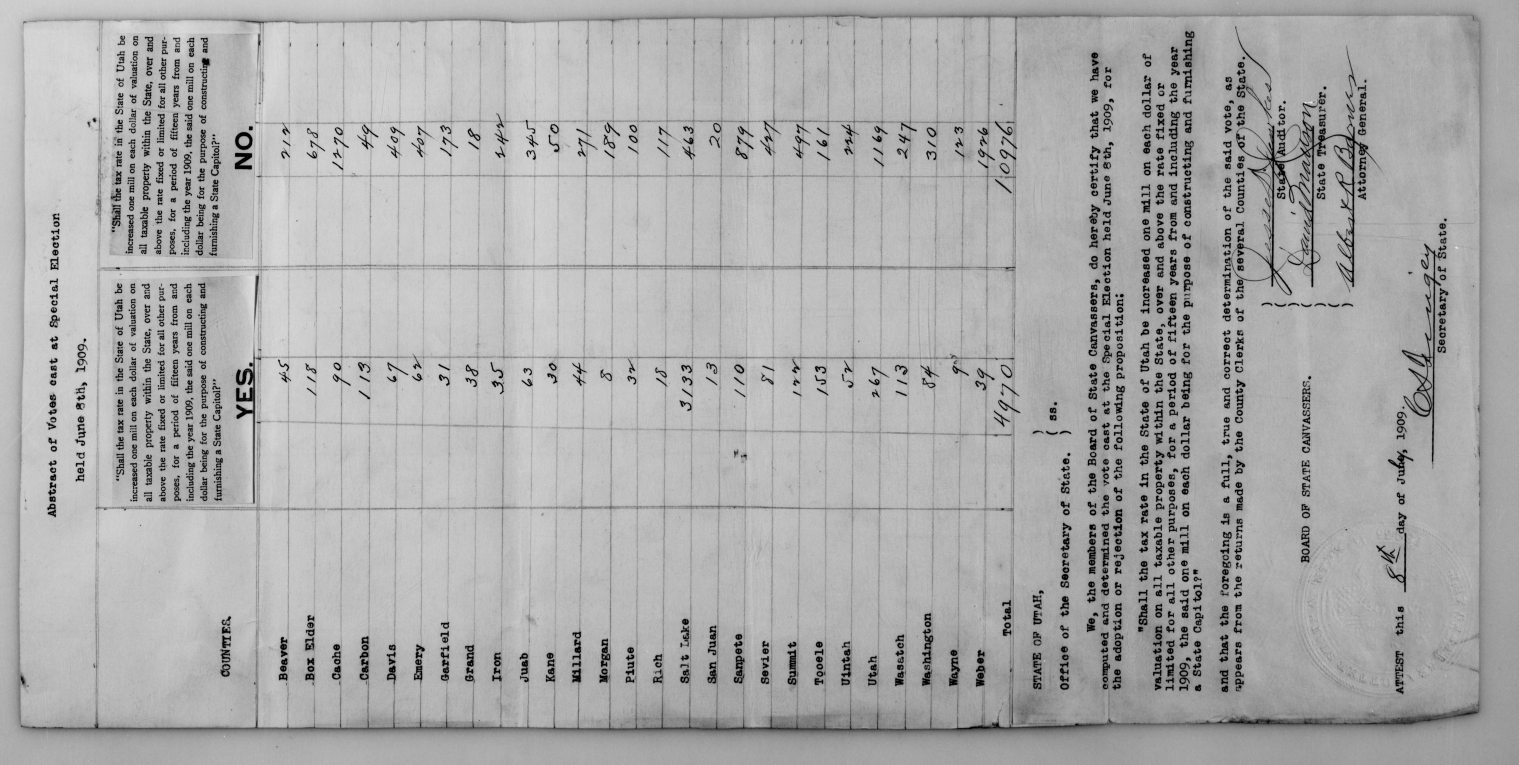 Abstract of Votes cast at Special Election
held June 8th, 1909.
COUNTIES.
"Shall the tax rate in the State of Utah be
increased one mill on each dollar of valuation on
all taxable property within the State, over and
above the rate fixed or limited for all other pur-
poses, for a period of fifteen years from and
including the year 1909, the said one mill on each
dollar being for the purpose of constructing and
furnishing a State Capitol?"
YES.
"Shall the tax rate in the State of Utah be
increased one mill on each dollar of valuation on
all taxable property within the State, over and
above the rate fixed or limited for all other pur-
poses, for a period of fifteen years from and
including the year 1909, the said one mill on each
dollar being for the purpose of constructing and
furnishing a State Capitol?"
NO.
Beaver 45 212
Box Elder 118 678
Cache 90 1270
Carbon 113 49
Davis 67 409
Emery 62 407
Garfield 31 173
Grand 38 18
Iron 35 242
Juab 63 345
Kane 30 50
Millard 44 271
Morgan 8 189
Piute 32 100
Rich 18 117
Salt Lake 3133 463
San Juan 13 20
Sanpete 110 879
Sevier 81 427
Summit 122 497
Tooele 153 161
Uintah 52 224
Utah 267 1169
Wasatch 113 247
Washington 84 310
Wayne 123
Weber 39 1926
Total 4970 10976
STATE OF UTAH, )
( ss.
Office of the Secretary of State. )
We, the members of the Board of State Canvassers, do hereby certify that we have
computed and determined the vote cast at the Special Election held June 8th, 1909, for
the adoption or rejection of the following proposition:
"Shall the tax rate in the State of Utah be increased one mill on each dollar of
valuation on all taxable property within the State, over and above the rate fixed or
limited for all other purposes, for a period of fifteen years from and including the year
1909, the said one mill on each dollar being for the purpose of constructing and furnishing
a State Capitol?"
and that the foregoing is a full, true and correct determination of the said vote, as
appears from the returns made by the County Clerks of the several Counties of the State.
State Auditor.
David Mattson
State Treasurer.
BOARD OF STATE CANVASSERS.
Albert R Barnes
Attorney General.
ATTEST this 8th day of July, 1909.
C S Tingey
Secretary of State.